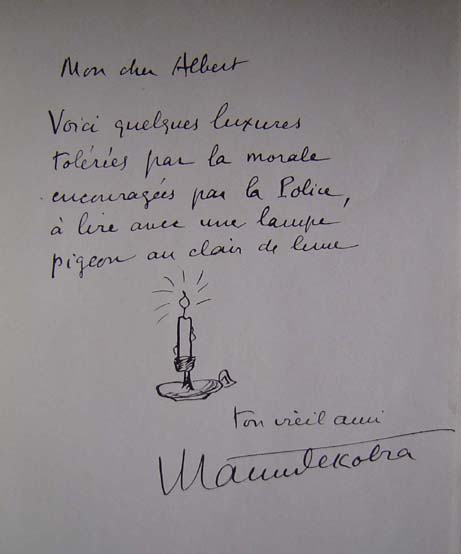 Mon cher Albert
Voici quelques luxures
tolérées par la morale
encouragées par la Police,
à lire avec une lampe
pigeon au clair de lune
ton vieil ami
Maurice Dekobra